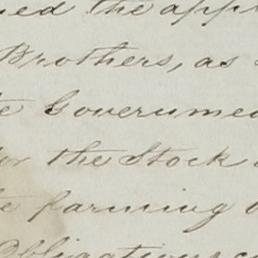 the appl
Brothers, as
Governme
for the Stock
farming
Obligations